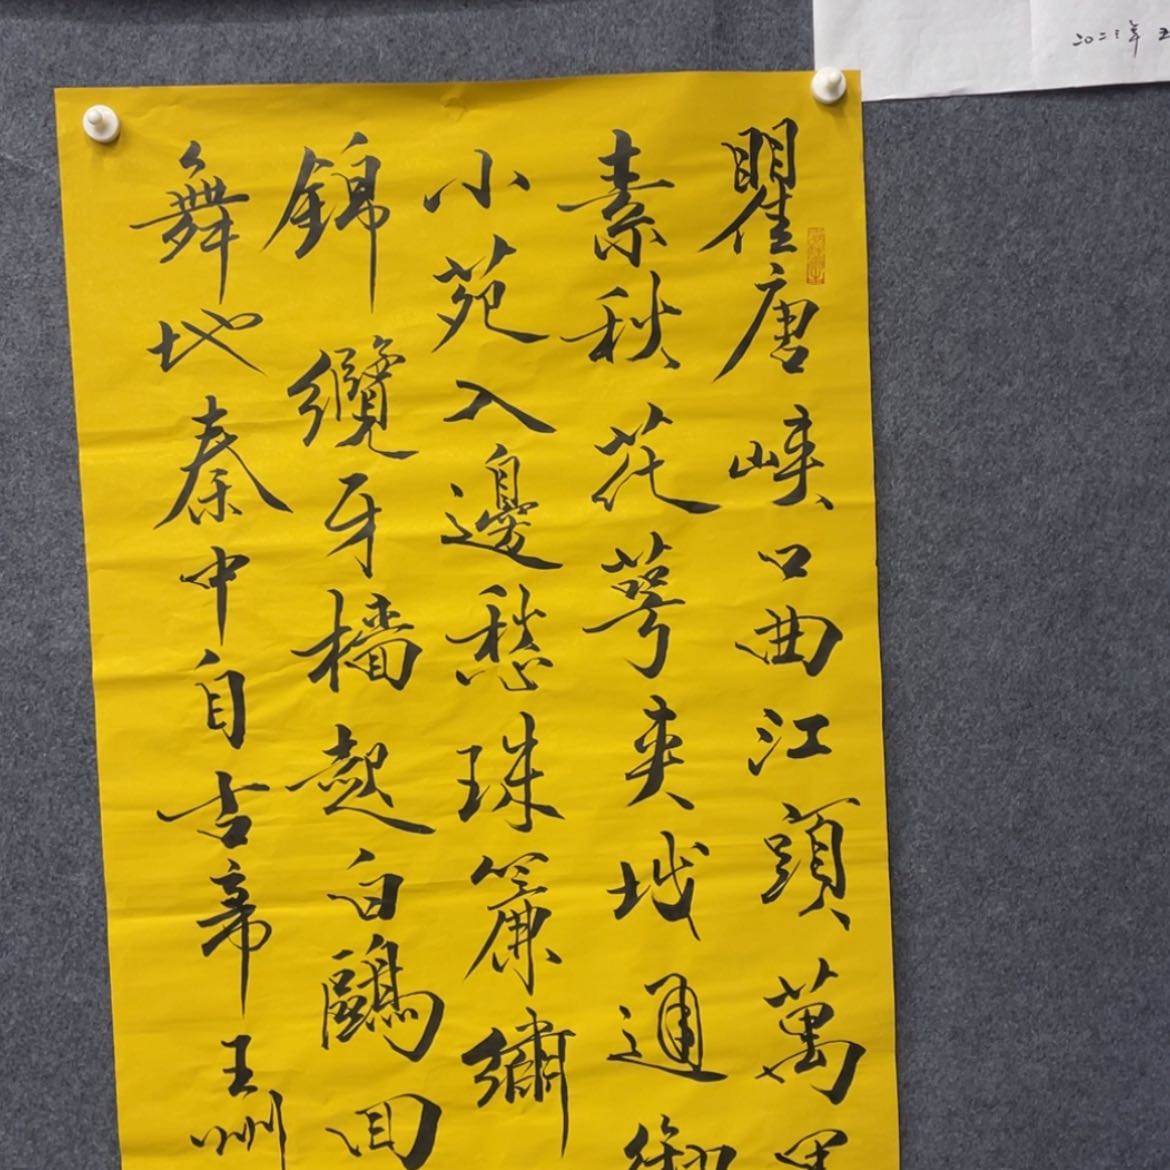 二〇二三年
瞿唐峽口曲江頭萬里
素秋花萼夾城通御
小苑入邊愁珠簾繡
錦纜牙檣起白鷗回
舞地秦中自古帝王州